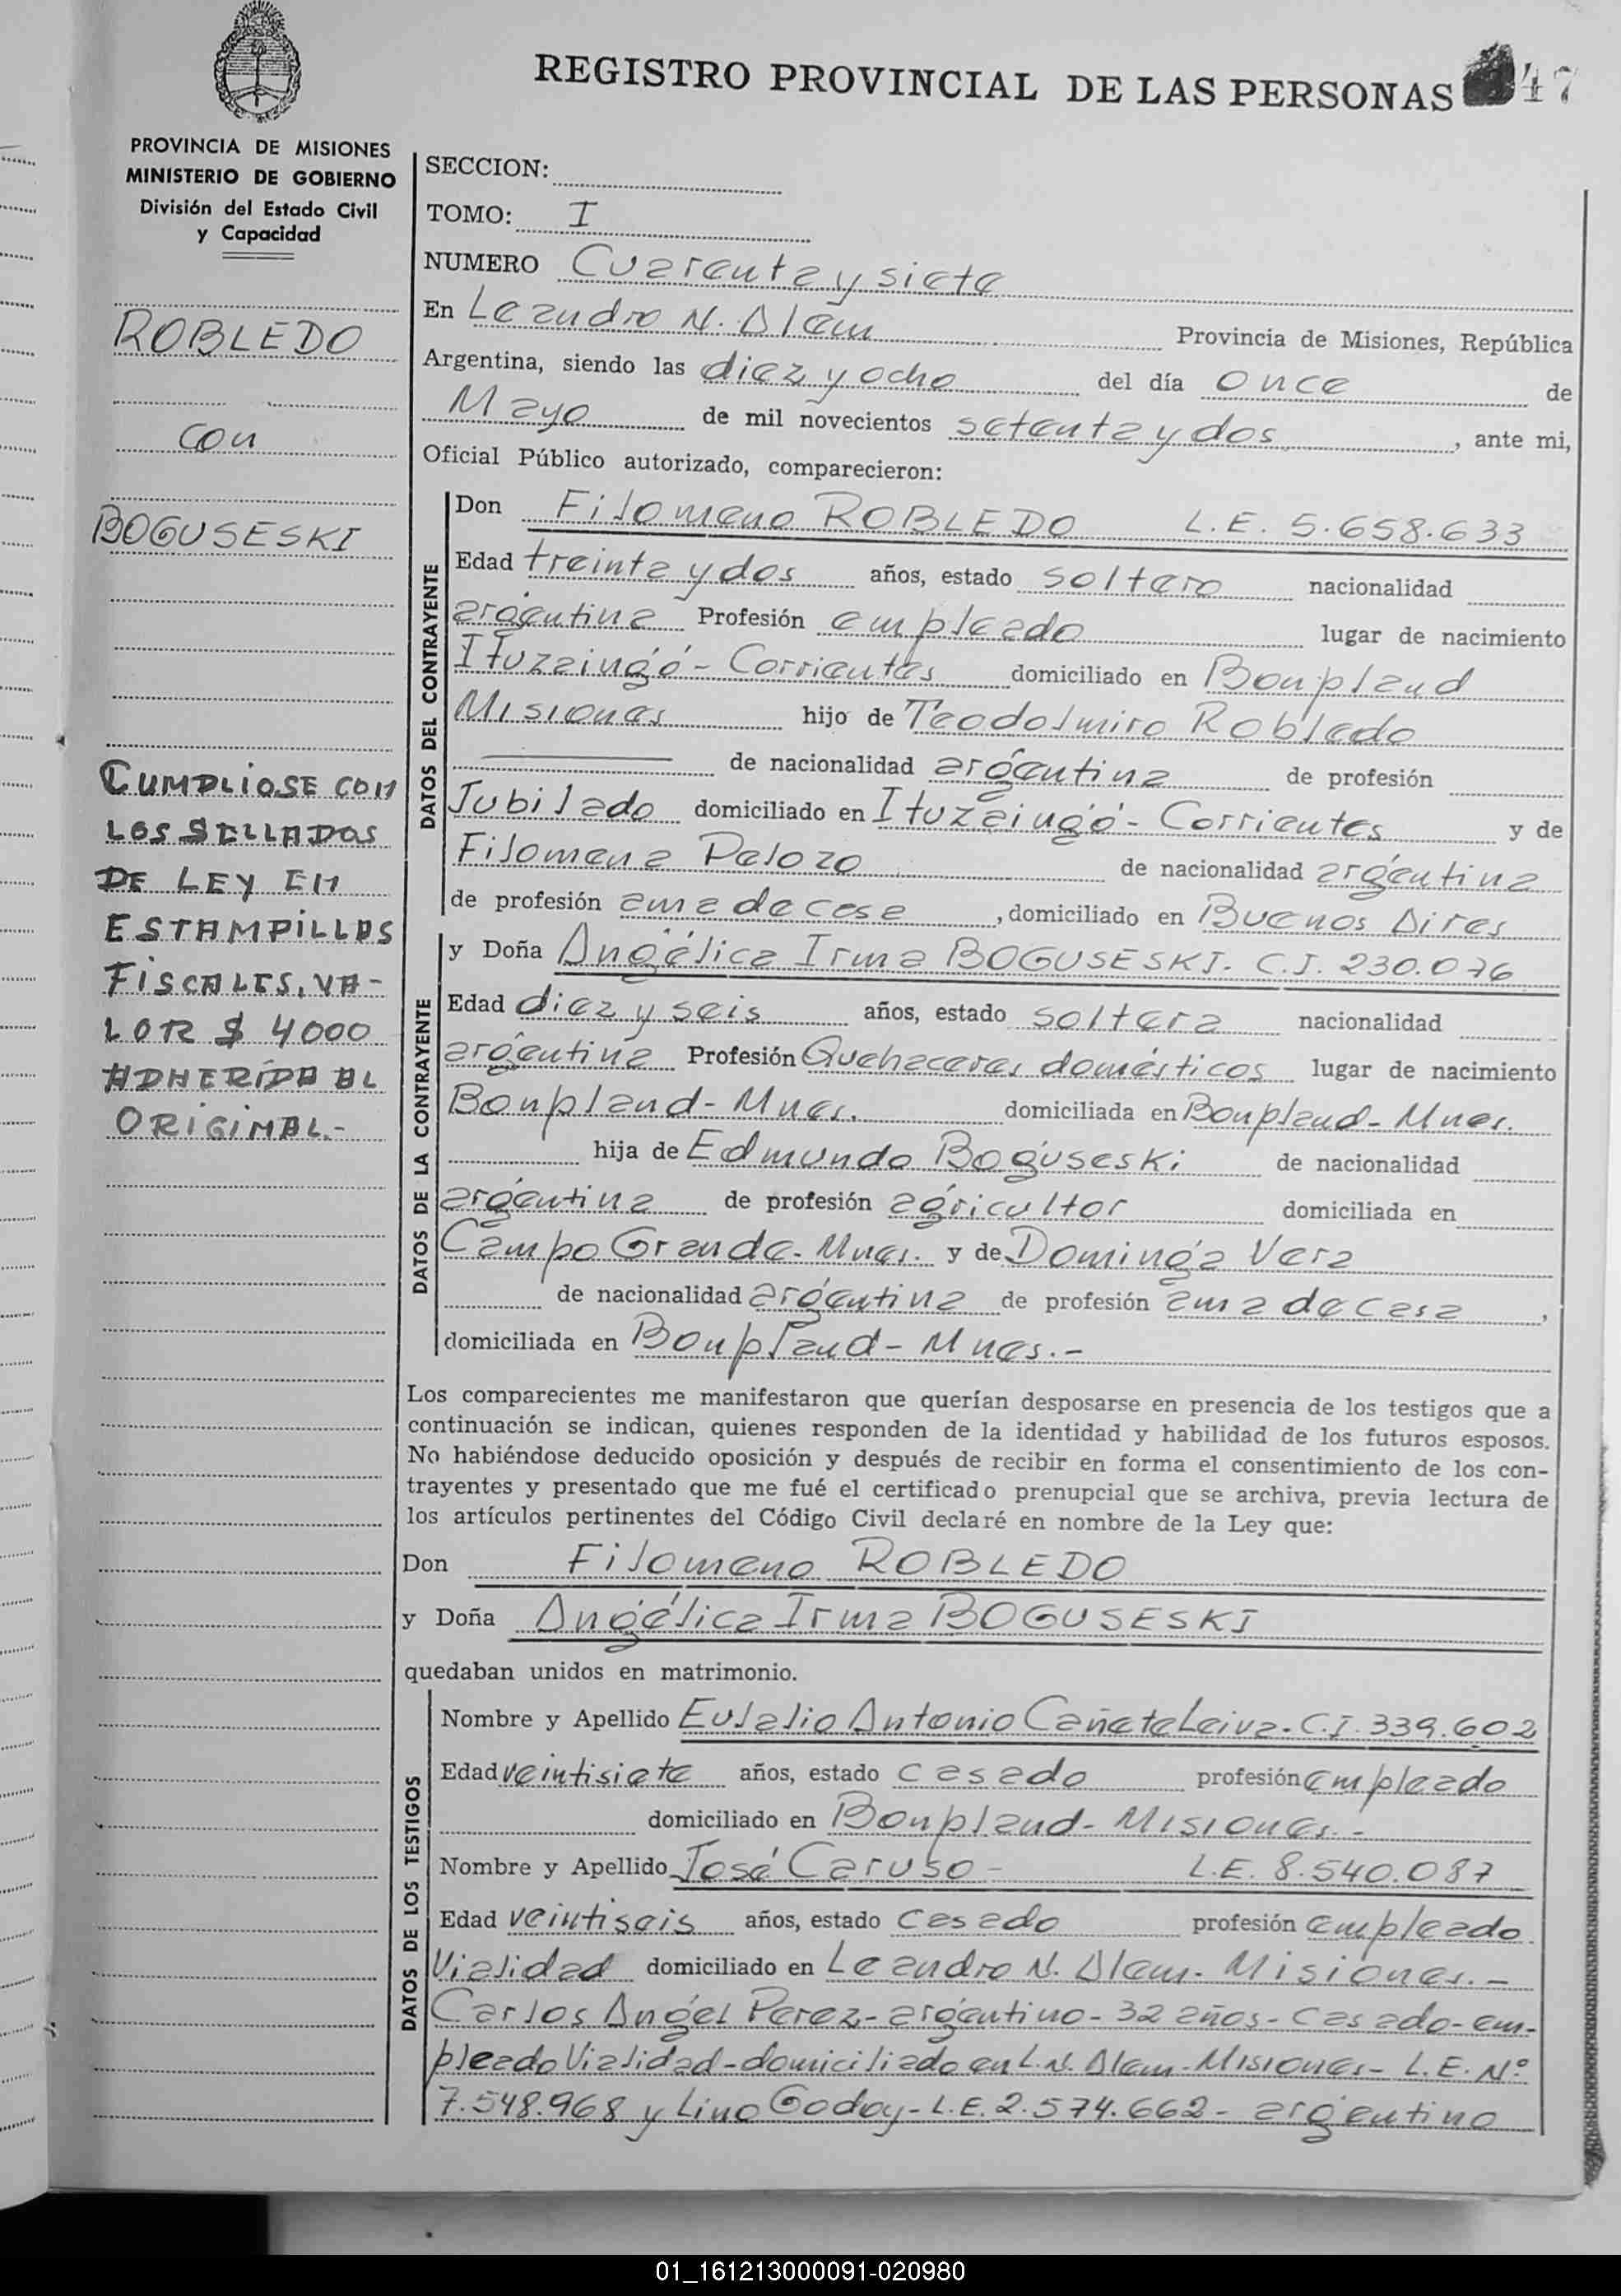 REGISTRO PROVINCIAL DE LAS PERSONAS 47
PROVINCIA DE MISIONES
MINISTERIO DE GOBIERNO
División del Estado Civil
y Capacidad
ROBLEDO
con
BOGUSESKI
CUMPLIOSE CON
LOS SELLADOS
DE LEY EN
ESTAMPILLAS
FISCALES, VA-
LOR $ 4000
ADHERIDA AL
ORIGINAL.-
SECCION:
TOMO: I
NUMERO Cuarenta y siete
En Leandro N. Alem Provincia de Misiones, República
Argentina, siendo las diez y ocho del día once de
Mayo de mil novecientos setenta y dos, ante mi,
Oficial Público autorizado, comparecieron:
DATOS DEL CONTRAYENTE
Don Filomeno ROBLEDO L.E. 5.658.633
Edad treinta y dos años, estado soltero nacionalidad
argentina Profesión empleado lugar de nacimiento
Ituzaingó - Corrientes domiciliado en Bonpland
Misiones hijo de Teodolmiro Robledo
de nacionalidad argentina de profesión
Jubilado domiciliado en Ituzaingó - Corrientes y de
Filomena Pelozo de nacionalidad argentina
de profesión ama de casa, domiciliado en Buenos Aires
DATOS DE LA CONTRAYENTE
y Doña Angélica Irma BOGUSESKI. C.I. 230.076
Edad diez y seis años, estado soltera nacionalidad
argentina Profesión Quehaceres domésticos lugar de nacimiento
Bonpland - Mnes. domiciliada en Bonpland - Mnes.
hija de Edmundo Boguseski de nacionalidad
argentina de profesión agricultor domiciliada en
Campo Grande - Mnes. y de Dominga Vera
de nacionalidad argentina de profesión ama de casa,
domiciliada en Bonpland - Mnes.-
Los comparecientes me manifestaron que querían desposarse en presencia de los testigos que a
continuación se indican, quienes responden de la identidad y habilidad de los futuros esposos.
No habiéndose deducido oposición y después de recibir en forma el consentimiento de los con-
trayentes y presentado que me fué el certificado prenupcial que se archiva, previa lectura de
los artículos pertinentes del Código Civil declaré en nombre de la Ley que:
Don Filomeno ROBLEDO
y Doña Angélica Irma BOGUSESKI
quedaban unidos en matrimonio.
DATOS DE LOS TESTIGOS
Nombre y Apellido Eulalio Antonio Cañete Leiva - C.I. 339.602
Edad veintisiete años, estado casado profesión empleado
domiciliado en Bonpland - Misiones.-
Nombre y Apellido José Caruso - L.E. 8.540.087
Edad veintiseis años, estado casado profesión empleado
Vialidad domiciliado en Leandro N. Alem - Misiones.-
Carlos Angel Perez - argentino - 32 años - casado - em-
pleado Vialidad - domiciliado en L.N. Alem - Misiones - L.E. Nº
7.548.968 y Lino Godoy - L.E. 2.574.662 - argentino
01_161213000091-020980